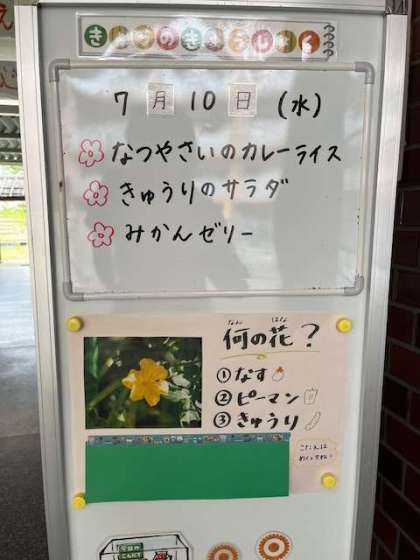 きょうのきゅうしょく
7月10日(水)
なつやさいのカレーライス
きゅうりのサラダ
みかんゼリー
なん はな
何の花?
①なす
②ピーマン
③きゅうり
こたえは
めくってね!